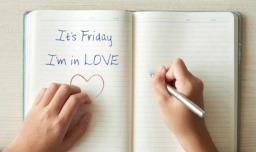 It's Friday
I'm in LOVE